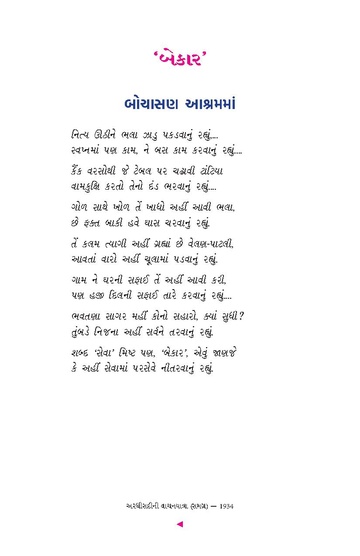 ‘બેકાર’
બોચાસણ આશ્રમમાં
નિત્ય ઊઠીને ભલા ઝાડુ પકડવાનું રહ્યું,...
સ્વપ્નમાં પણ કામ, ને બસ કામ કરવાનું રહ્યું,...
કૈંક વરસોથી જે ટેબલ પર ચઢાવી ટાંટિયા
વામકુક્ષિ કરતો તેનો દંડ ભરવાનું રહ્યું,...
ગોળ સાથે ખોળ તેં ખાધો અહીં આવી ભલા,
છે ફક્ત બાકી હવે ઘાસ ચરવાનું રહ્યું.
તેં કલમ ત્યાગી અહીં ગ્રહ્યાં છે વેલણ-પાટલી,
આવતાં વારો અહીં ચૂલામાં પડવાનું રહ્યું.
ગામ ને ઘરની સફાઈ તેં અહીં આવી કરી,
પણ હજી દિલની સફાઈ તારે કરવાનું રહ્યું,...
ભવતણા સાગર મહીં કોનો સહારો, ક્યાં સુધી?
તુંબડે નિજના અહીં સર્વને તરવાનું રહ્યું.
શબ્દ ‘સેવા’ મિષ્ટ પણ, ‘બેકાર’, એવું જાણજે
કે અહીં સેવામાં પરસેવે નીતરવાનું રહ્યું.
અરધીસદીની વાચનયાત્રા (સમગ્ર) — 1934